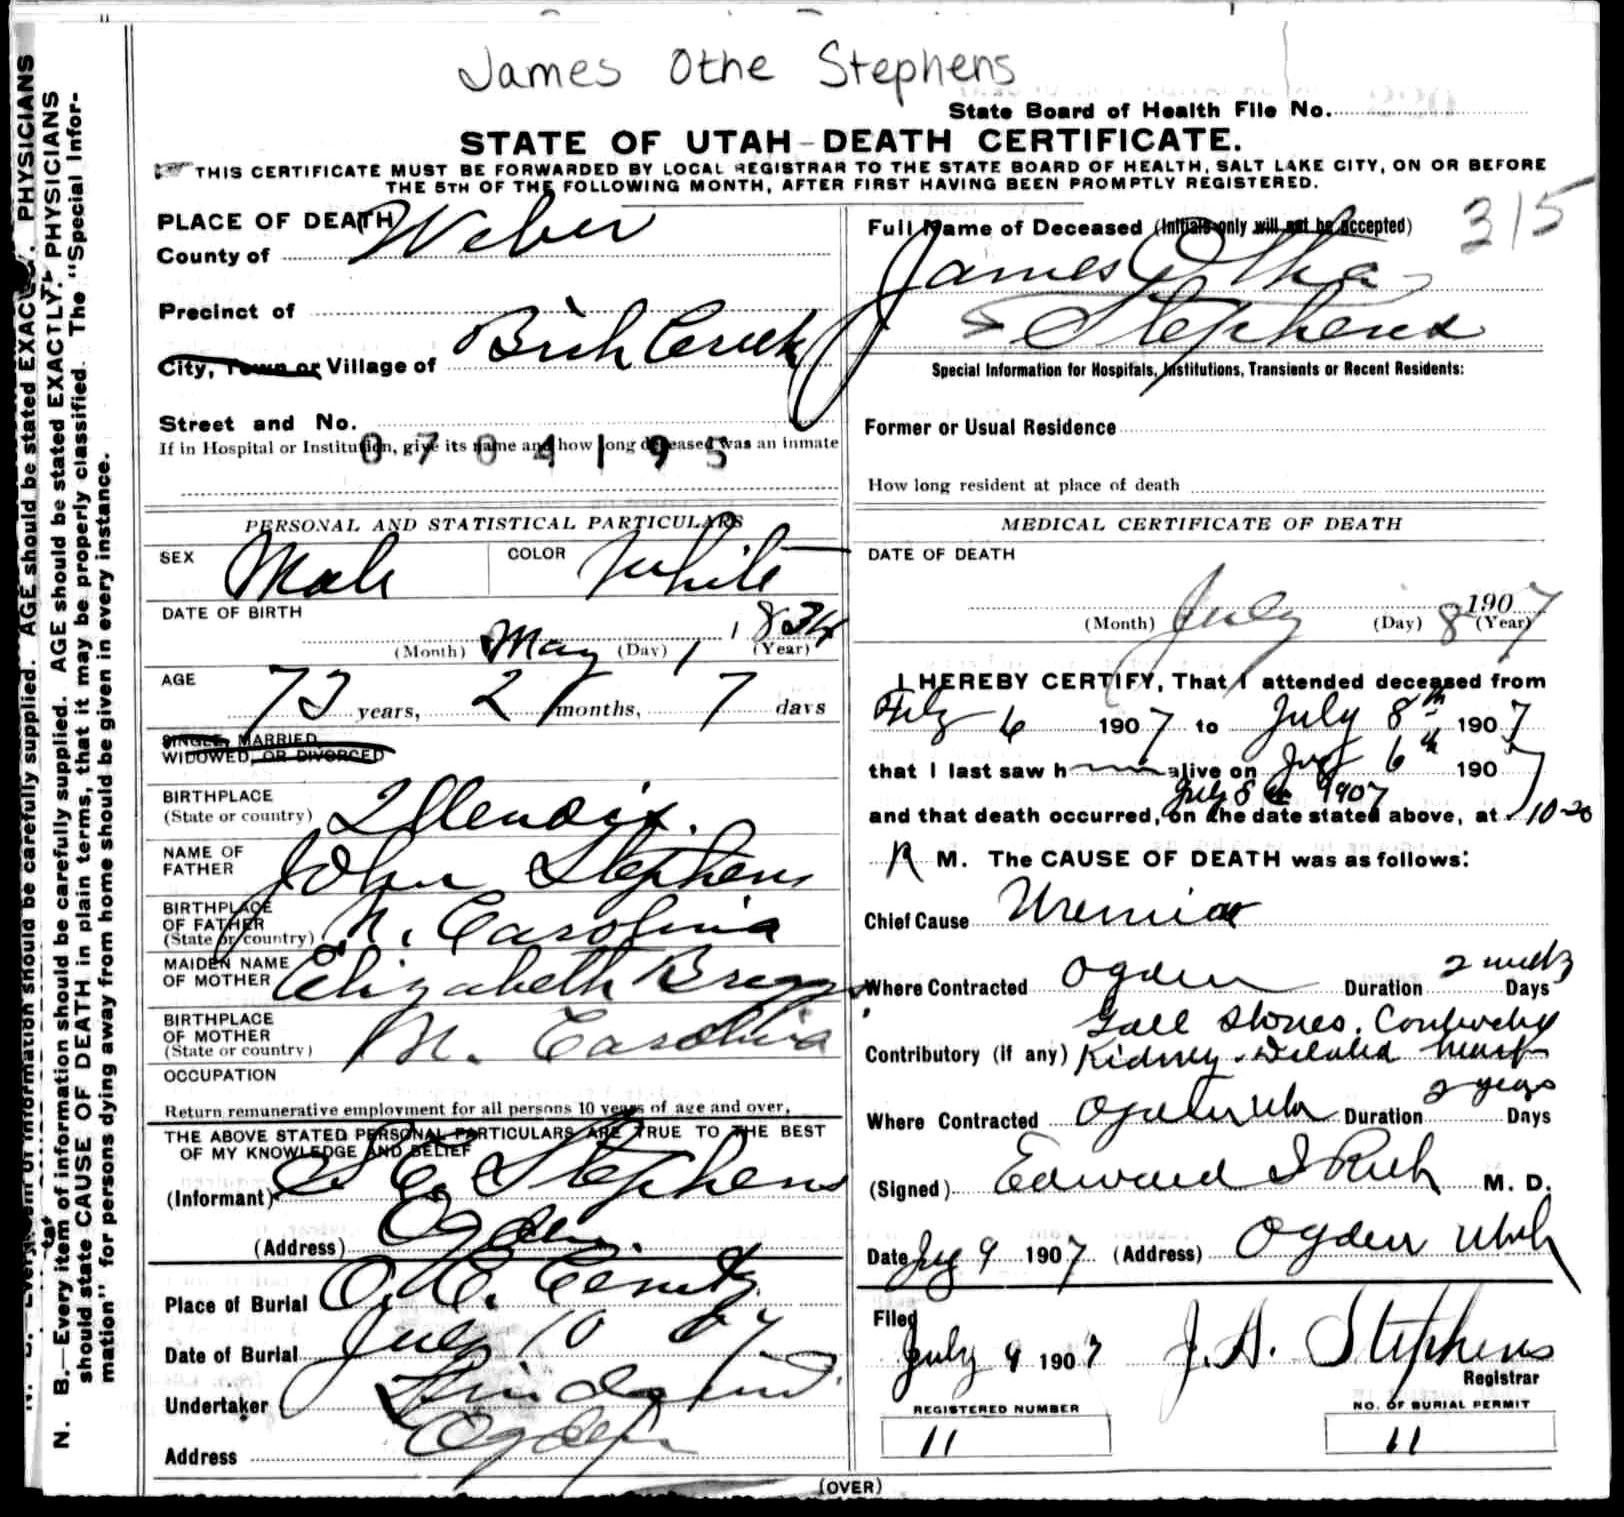 James Othe Stephens
State Board of Health File No.
STATE OF UTAH-DEATH CERTIFICATE.
THIS CERTIFICATE MUST BE FORWARDED BY LOCAL REGISTRAR TO THE STATE BOARD OF HEALTH, SALT LAKE CITY, ON OR BEFORE
THE 5TH OF THE FOLLOWING MONTH, AFTER FIRST HAVING BEEN PROMPTLY REGISTERED.
315
PLACE OF DEATH
County of Weber
Precinct of
City, Town or Village of Birch Creek
Street and No.
If in Hospital or Institution, give its name and how long deceased was an inmate
0704195
PERSONAL AND STATISTICAL PARTICULARS
SEX Male COLOR White
DATE OF BIRTH
(Month) May (Day) 1 1834 (Year)
AGE
73 years, 2 months, 7 days
SINGLE, MARRIED
WIDOWED, OR DIVORCED
BIRTHPLACE
(State or country)
NAME OF
FATHER John Stephens
BIRTHPLACE
OF FATHER
(State or country) N. Carolina
MAIDEN NAME
OF MOTHER Elizabeth Briggs
BIRTHPLACE
OF MOTHER
(State or country) N. Carolina
OCCUPATION
Return remunerative employment for all persons 10 years of age and over.
THE ABOVE STATED PERSONAL PARTICULARS ARE TRUE TO THE BEST
OF MY KNOWLEDGE AND BELIEF
(Informant) Stephens
(Address) Ogden.
Place of Burial
Date of Burial July 10 07
Undertaker
Address Ogden
Full Name of Deceased (Initials only will not be accepted)
James Otha
Stephens
Special Information for Hospitals, Institutions, Transients or Recent Residents:
Former or Usual Residence
How long resident at place of death
MEDICAL CERTIFICATE OF DEATH
DATE OF DEATH
(Month) July (Day) 8 1907 (Year)
I HEREBY CERTIFY, That I attended deceased from
6 1907 to July 8th 1907
that I last saw h alive on 6th 190
July 8 1907
and that death occurred, on the date stated above, at 10-20
M. The CAUSE OF DEATH was as follows:
Chief Cause Uremia
Where Contracted Ogden Duration 2 weeks Days
Gall stones,
Contributory (if any) Kidney. Dilated heart
Where Contracted Ogden Utah Duration 2 years Days
(Signed) Edward I Rich M. D.
Date July 9 1907 (Address) Ogden Utah
Filed
July 9 1907 J. A. Stephens
Registrar
REGISTERED NUMBER
11
NO. OF BURIAL PERMIT
11
(OVER)
N. B.—Every item of information should be carefully supplied. AGE should be stated EXACTLY. PHYSICIANS
should state CAUSE OF DEATH in plain terms, that it may be properly classified. The "Special Infor-
mation" for persons dying away from home should be given in every instance.
information should be carefully supplied. AGE should be stated PHYSICIANS